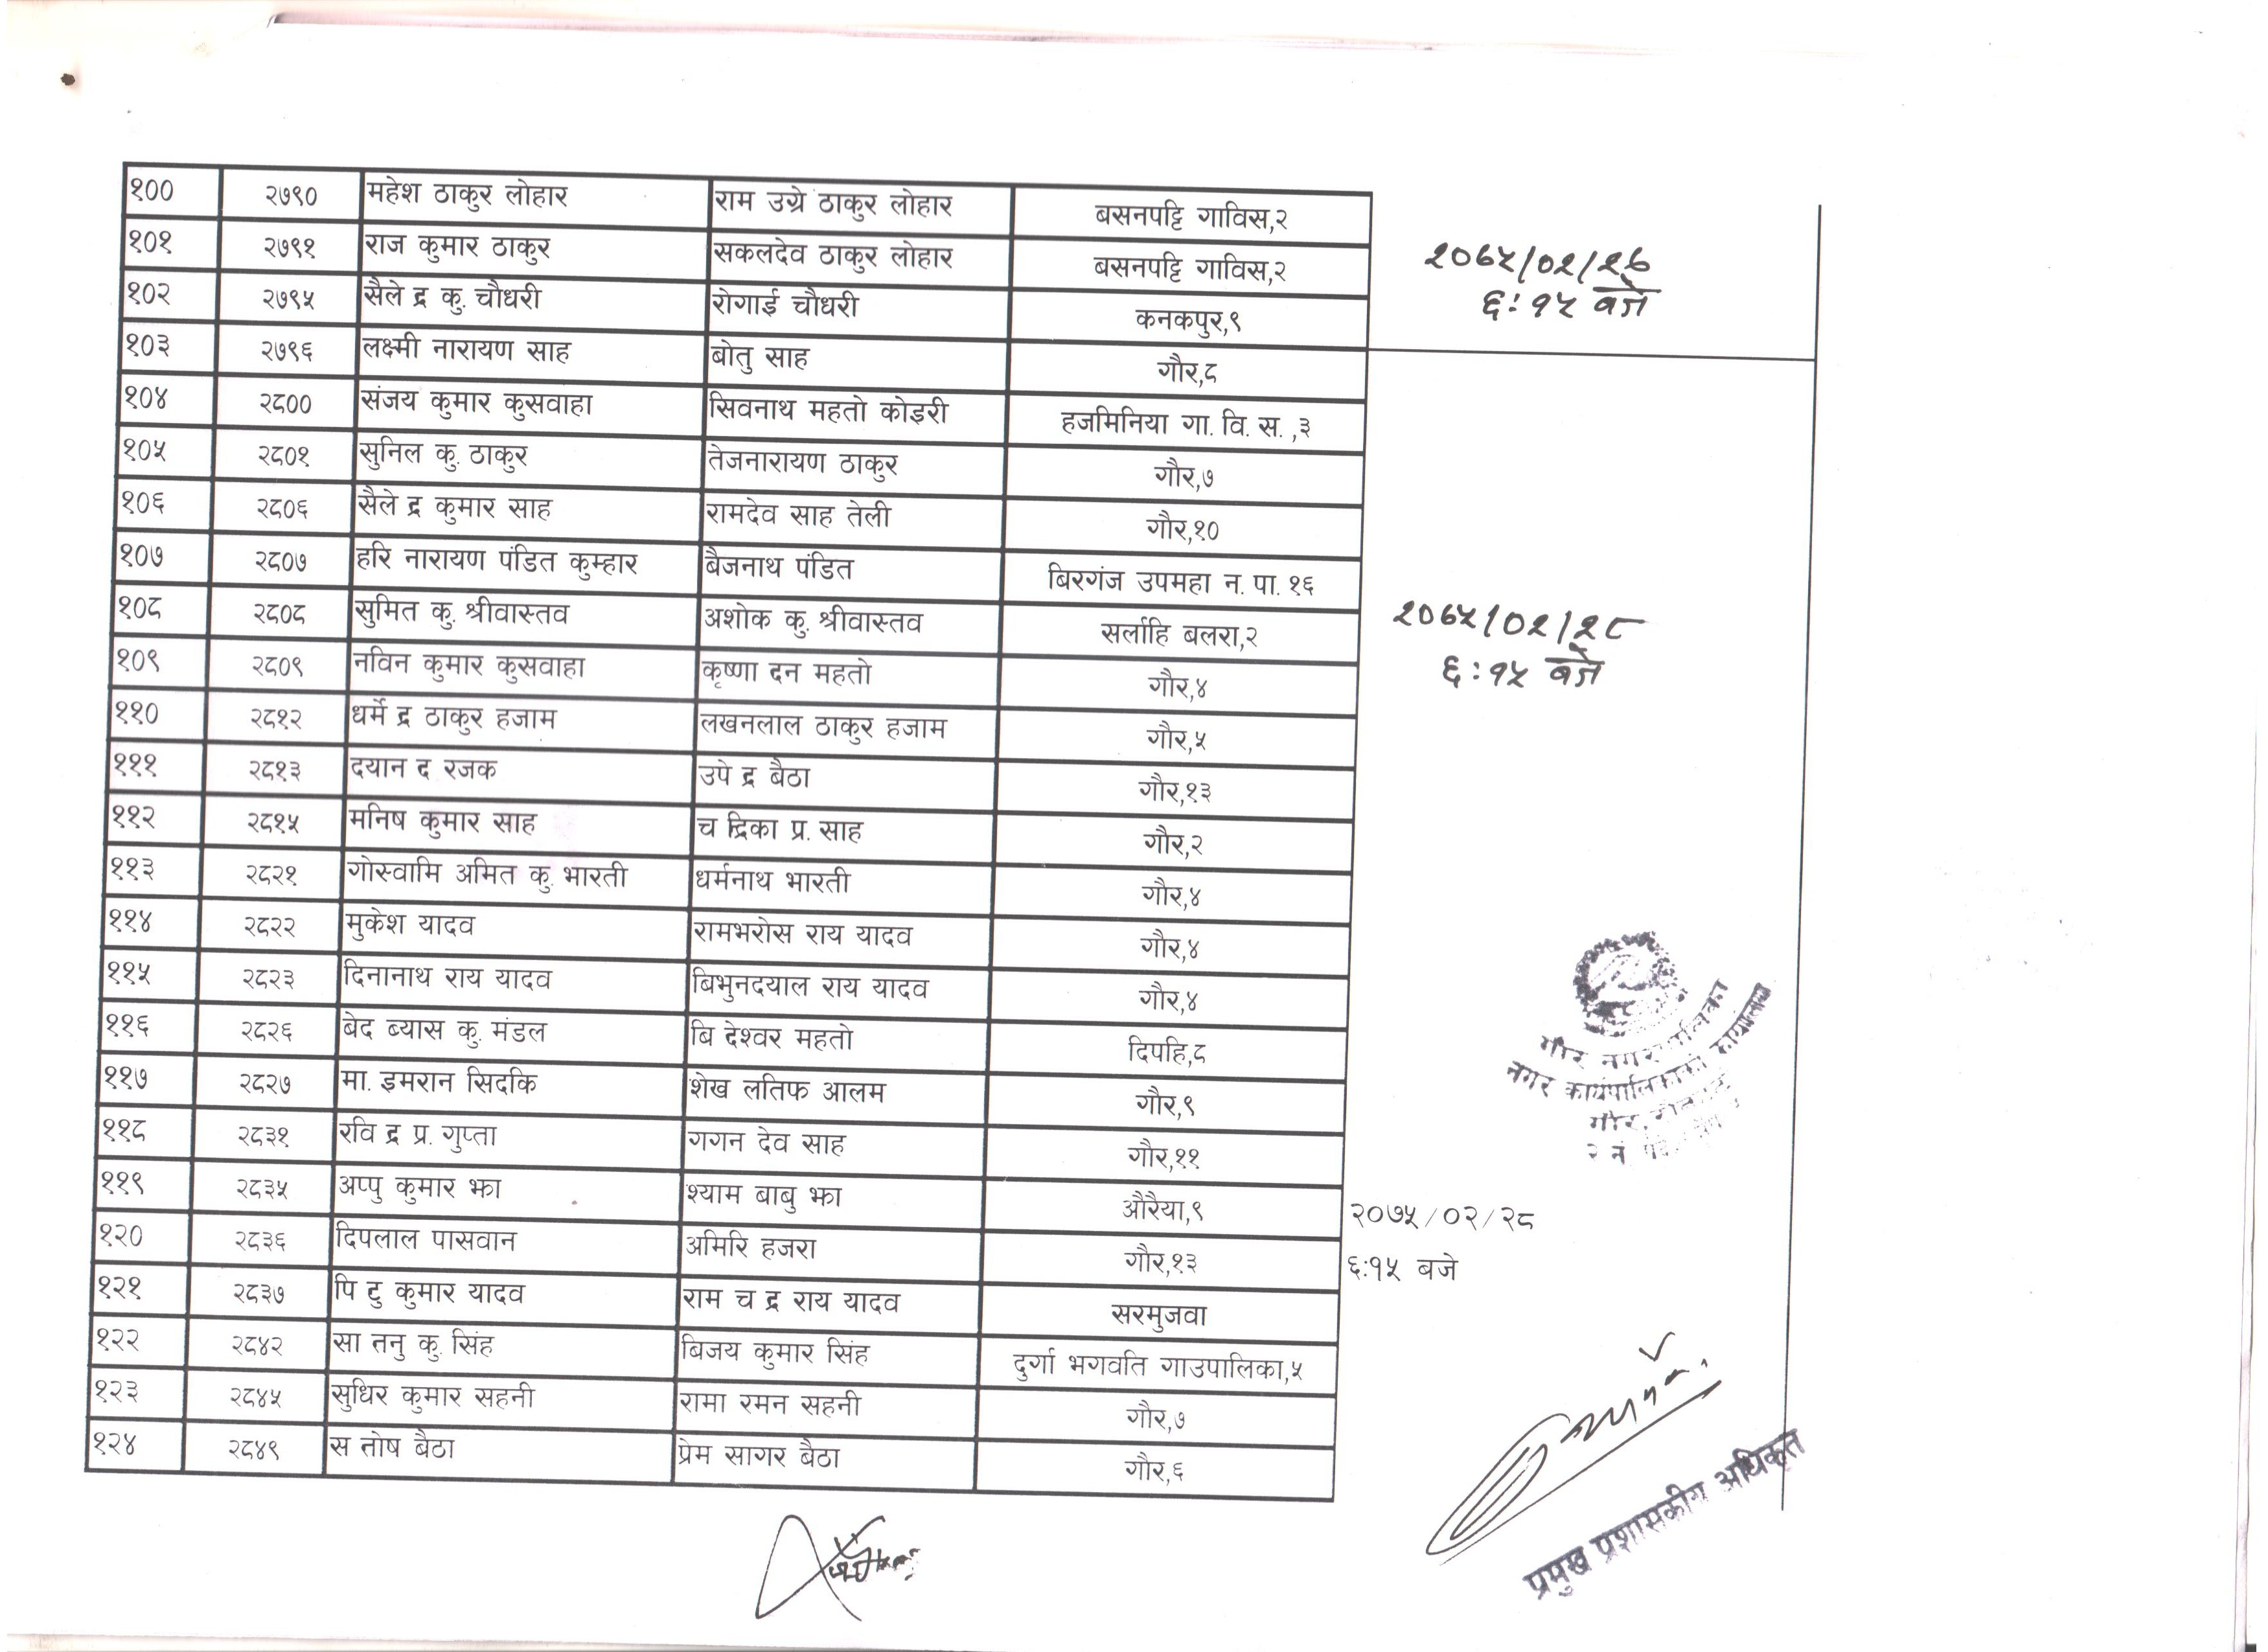 १०० २७९० महेश ठाकुर लोहार राम उग्रे ठाकुर लोहार बसनपट्टि गाविस,२
१०१ २७९१ राज कुमार ठाकुर सकलदेव ठाकुर लोहार बसनपट्टि गाविस,२
२०७५/०२/२७
६:१५ बजे
१०२ २७९५ सैले द्र कु. चौधरी रोगाई चौधरी कनकपुर,९
१०३ २७९६ लक्ष्मी नारायण साह बोतु साह गौर,८
१०४ २८०० संजय कुमार कुसवाहा सिवनाथ महतो कोइरी हजमिनिया गा. वि. स. ,३
१०५ २८०१ सुनिल कु. ठाकुर तेजनारायण ठाकुर गौर,७
१०६ २८०६ सैले द्र कुमार साह रामदेव साह तेली गौर,१०
१०७ २८०७ हरि नारायण पंडित कुम्हार बैजनाथ पंडित बिरगंज उपमहा न. पा. १६
१०८ २८०८ सुमित कु. श्रीवास्तव अशोक कु. श्रीवास्तव सर्लाहि बलरा,२
२०७५/०२/२८
६:१५ बजे
१०९ २८०९ नविन कुमार कुसवाहा कृष्णा दन महतो गौर,४
११० २८१२ धर्मे द्र ठाकुर हजाम लखनलाल ठाकुर हजाम गौर,५
१११ २८१३ दयान द रजक उपे द्र बैठा गौर,१३
११२ २८१५ मनिष कुमार साह च द्रिका प्र. साह गौर,२
११३ २८२१ गोस्वामि अमित कु. भारती धर्मनाथ भारती गौर,४
११४ २८२२ मुकेश यादव रामभरोस राय यादव गौर,४
११५ २८२३ दिनानाथ राय यादव बिभुनदयाल राय यादव गौर,४
११६ २८२६ बेद ब्यास कु. मंडल बि देश्वर महतो दिपहि,८
११७ २८२७ मा. इमरान सिदकि शेख लतिफ आलम गौर,९
११८ २८३१ रवि द्र प्र. गुप्ता गगन देव साह गौर,११
गौर नगरपालिका
नगर कार्यपालिकाको कार्यालय
गौर,
११९ २८३५ अप्पु कुमार झा श्याम बाबु झा औरैया,९ २०७५/०२/२८
१२० २८३६ दिपलाल पासवान अमिरि हजरा गौर,१३ ६:१५ बजे
१२१ २८३७ पि टु कुमार यादव राम च द्र राय यादव सरमुजवा
१२२ २८४२ सा तनु कु. सिंह बिजय कुमार सिंह दुर्गा भगवति गाउपालिका,५
१२३ २८४५ सुधिर कुमार सहनी रामा रमन सहनी गौर,७
१२४ २८४९ स तोष बैठा प्रेम सागर बैठा गौर,६
प्रमुख प्रशासकीय अधिकृत